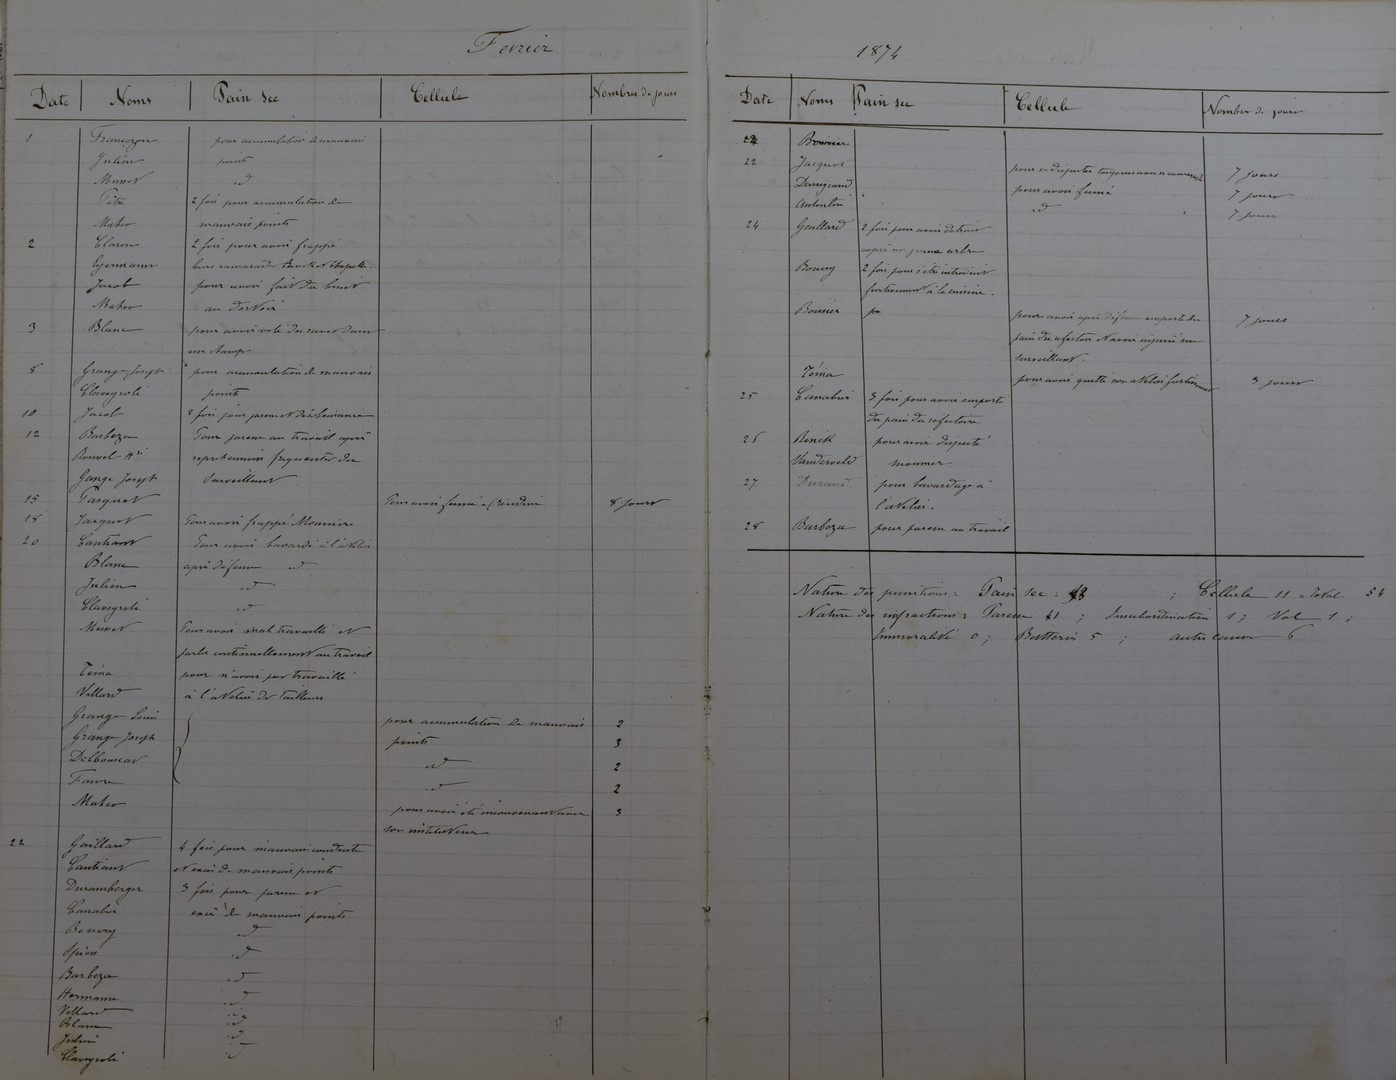 Fevrier
Date Noms Pain sec Cellule Nombre de jours
1 Francezon pour accumulation de mauvais
Julien points
Musset id
Tête 2 fois pour accumulation de
Maheo mauvais points
2 Claron 2 fois pour avoir frappé
Egermann leurs camarades
Jacob pour avoir fait du bruit
Maheo au dortoir
3 Blanc pour avoir volé des raves dans
un champ
8 Grange Joseph pour accumulation de mauvais
Claveyrole points
10 Jacob 2 fois pour paresse et désobéissance
12 Barbeza Pour paresse au travail après
Rouvel Hri reprehensions frequentes du
Gange Joseph Surveillant
15 Pasquet Pour avoir fumé 8 jours
18 Jacquot Pour avoir frappé Mounier
20 Cantiant Pour avoir bavardé à l'atelier
Blanc après défense id
Julien id
Claveyrole id
Musset Pour avoir mal travaillé et
parlé continuellement au travail
Téina pour n'avoir pas travaillé
Villard à l'atelier de tailleurs
Grange Louis pour accumulation de mauvais 2
Grange Joseph points 3
Delboucas id 2
Favre id 2
Maheo pour avoir été inconvenant avec 3
son instituteur
22 Gaillard 4 fois pour mauvaise conduite
Cantiant et excès de mauvais points
Duramberger 3 fois pour paresse et
Canabis excès de mauvais points
Bouvry id
Spion id
Barbeza id
Hermann id
Villard id
Blanc id
Julien id
Claveyrole id
1874
Date Noms Pain sec Cellule Nombre de jours
22 Bounier
22 Jacquot pour se disputer toujours avec 7 jours
Darrigrand pour avoir fumé 7 jours
Antoulin id 7 jours
24 Gaillard 2 fois pour avoir détruit
exprès un jeune arbre
Bouvry 2 fois pour s'etre introduit
furtivement à la cuisine.
Bounier po pour avoir après défense emporté du 7 jours
pain du réfectoire et avoir injurié son
surveillant.
Téina pour avoir quitté son atelier furtivement 3 jours
25 Canabis 3 fois pour avoir emporté
du pain du réfectoire
26 Renck pour avoir disputé
Vanderveld mounier
27 Durand pour bavardage à
l'atelier.
28 Barbeza pour paresse au travail
Nature des punitions: Pain sec: 43 ; Cellule 11 = Total 54
Nature des infractions: Paresse 41 ; Insubordination 1 ; Vol 1 ;
Immoralité 0 ; Batteries 5 ; autre cause 6